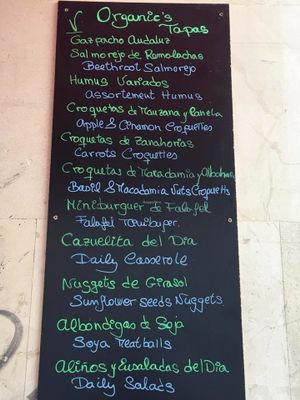 V Organic's
Tapas
Gazpacho Andaluz
Salmorejo de Remolachas
Beethroot Salmorejo
Humus Variados
Assortement Humus
Croquetas de Manzana y Canela
Apple & Cinamon Croquettes
Croquetas de Zanahorias
Carrots Croquettes
Croquetas de Macadamia y Albahaca
Basil & Macadamia Nuts Croquetts
Miniburguer de Falafel
Falafel
Cazuelita del Dia
Daily Casserole
Nuggets de Girasol
Sunflower Seeds Nuggets
Albondigas de Soja
Soya Meatballs
Aliños y Ensaladas del Dia
Daily Salads